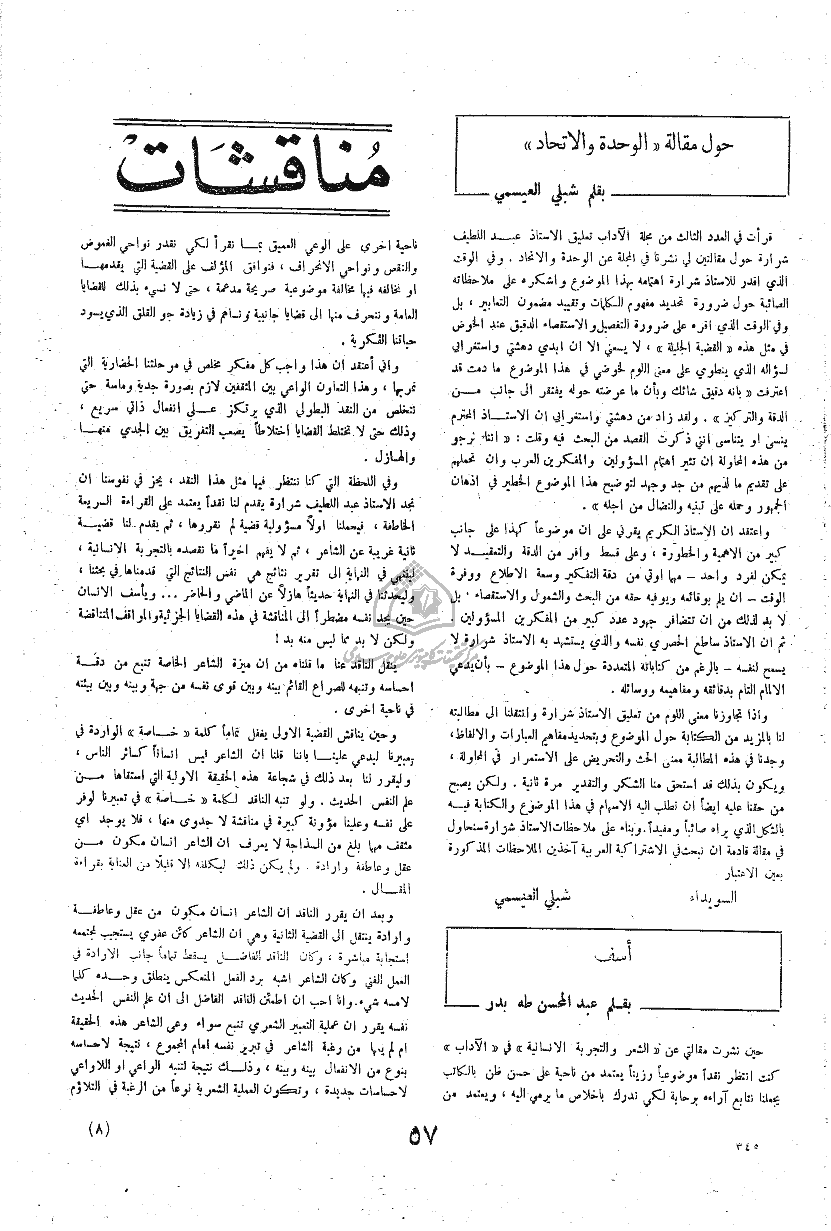 مُناقَشَات
حول مقالة « الوحدة والاتحاد »
بقلم شبلي العيسمي
قرأت في العدد الثالث من مجلة الآداب تعليق الاستاذ عبد اللطيف
شرارة حول مقالتين لي نشرتا في المجلة عن الوحدة والاتحاد . وفي الوقت
الذي اقدر للاستاذ شرارة اهتمامه بهذا الموضوع واشكره على ملاحظاته
الصائبة حول ضرورة تحديد مفهوم الكلمات وتقييد مضمون التعابير ، بل
وفي الوقت الذي اقره على ضرورة التفصيل والاستقصاء الدقيق عند الخوض
في مثل هذه « القضية الجليلة » ، لا يسعني الا ان ابدي دهشتي واستغرابي
لسؤاله الذي ينطوي على معنى اللوم لخوضي في هذا الموضوع ما دمت قد
اعترفت « بانه دقيق شائك وبأن ما عرضته حوله يفتقر الى جانب مـن
الدقة والتركيز » . ولقد زاد من دهشتي واستغرابي ان الاستـاذ المحترم
ينسى او يتناسى انني ذكرت القصد من البحث فيه وقلت : « اننا نرجو
من هذه المحاولة ان تثير اهتمام المسؤولين والمفكرين العرب وان تحملهم
على تقديم ما لديهم من جد وجهد لتوضيح هذا الموضوع الخطير في اذهان
الجمهور وحمله على تبنيه والنضال من اجله » .
واعتقد ان الاستاذ الكريم يقرني على ان موضوعاً كهذا على جانب
كبير من الاهمية والخطورة ، وعلى قسط وافر من الدقة والتعقيـد لا
يمكن لفرد واحد – مهما اوتي من دقة التفكير وسعة الاطلاع ووفرة
الوقت – ان يلم بوقائعه ويوفيه حقه من البحث والشمول والاستقصاء ' بل
لا بد لذلك من ان تتضافر جهود عدد كبير من المفكرين المسؤولين .
ثم ان الاستاذ ساطع الحصري نفسه والذي يستشهد به الاستاذ شرارة لا
يسمح لنفسه – بالرغم من كتاباته المتعددة حول هذا الموضوع – بأن يدعي
الالمام التام بدقائقه ومفاهيمه ووسائله .
واذا تجاوزنا معنى اللوم من تعليق الاستاذ شرارة وانتقلنا الى مطالبته
لنا بالمزيد من الكتابة حول الموضوع وبتحديد مفاهيم العبارات والالفاظ،
وجدنا في هذه المطالبة معنى الحث والتحريض على الاستمرار في المحاولة ،
ويكون بذلك قد استحق منا الشكر والتقدير مرة ثانية . ولكن يصبح
من حقنا عليه ايضاً ان نطلب اليه الاسهام في هذا الموضوع والكتابة فيـه
بالشكل الذي يراه صائباً ومفيداً . وبناء على ملاحظات الاستاذ شرارة سنحاول
في مقالة قادمة ان نبحث في الاشتراكية العربية آخذين الملاحظات المذكورة
بعين الاعتبار
السويداء شبلي العيسمي
أسف
بقـلم عبد المحسن طه بدر
حين نشرت مقالتي عن « الشعر والتجربة الانسانية » في « الآداب »
كنت انتظر نقداً موضوعياً رزيناً يعتمد من ناحية على حسن ظن بالكاتب
يجعلنا نتابع آراءه برحابة لكي ندرك بأخلاص ما يرمي اليه ، ويعتمد من
ناحية اخرى على الوعي العميق بمـا نقرأ لـكي نقدر نواحي الغموض
والنقص ونواحي الانحراف ، فنوافق المؤلف على القضية التي يقدمهـا
او نخالفه فيها مخالفة موضوعية صريحة مدعمة ، حتى لا نسيء بذلك للقضايا
العامة وننحرف منها الى قضايا جانبية ونساهم في زيادة جو القلق الذي يسود
حياتنا الفكرية .
واني أعتقد ان هذا واجب كل مفكر مخلص في مرحلتنا الحضارية التي
نمر بها ، وهذا التعاون الواعي بين المثقفين لازم بصورة جدية وماسة حتى
نتخلص من النقد البطولي الذي يرتكز عـلى انفعال ذاتي سريع ،
وذلك حتى لا تختلط القضايا اختلاطاً يصعب التفريق بين الجدي منهـا
والهـازل .
وفي اللحظة التي كنا ننتظر فيها مثل هذا النقد ، يحز في نفوسنا ان
نجد الاستاذ عبد اللطيف شرارة يقدم لنا نقداً يعتمد على القراءة السريعة
الخاطفة ، فيحملنا اولاً مسؤولية قضية لم نقررها ، ثم يقدم لنا قضيـة
ثانية غريبة عن الشاعر ، ثم لا يفهم اخيراً ما نقصده بالتجربة الانسانية ،
لينتهي في النهاية الى تقرير نتائج هي نفس النتائج التي قدمناها في بحثنا ،
وليحدثنا في النهاية حديثاً هازلاً عن الماضي والحاضر ... ويأسف الانسان
حين يجد نفسه مضطراً الى المناقشة في هذه القضايا الجزئية والمواقف المتناقضة
ولكن لا بد مما ليس منه بد !
ينقل الناقد عنا ما قلناه من ان ميزة الشاعر الخاصة تنبع من دقـة
احساسه وتنبهه للصراع القائم بينه وبين قوى نفسه من جهة وبينه وبين بيئته
في ناحية اخرى .
وحين يناقش القضية الاولى يغفل تماماً كلمة « خـاصـة » الواردة في
تعبيرنا ليدعي علينـا باننا قلنا ان الشاعر ليس انساناً كسائر الناس ،
وليقرر لنا بعد ذلك في شجاعة هذه الحقيقة الاولية التي استقاها مـن
علم النفس الحديث . ولو تنبه الناقد لكلمة « خاصة » في تعبيرنا لوفر
على نفسه وعلينا مؤونة كبيرة في مناقشة لا جدوى منها ، فلا يوجد اي
مثقف مهما بلغ من السذاجة لا يعرف ان الشاعر انسان مكون مـن
عقل وعاطفة وارادة . ولم يكن ذلك ليكلفه الا قليلًا من العناية بقراءة
المقـال .
وبعد ان يقرر الناقد ان الشاعر انسان مكون من عقل وعاطفـة
وارادة ينتقل الى القضية الثانية وهي ان الشاعر كائن عفوي يستجيب لمجتمعه
استجابة مباشرة ، وكان الناقد الفاضـل يسقط تماماً جانب الارادة في
العمل الفني وكان الشاعر اشبه برد الفعل المنعكس ينطلق وحـده كلما
لامسه شيء . وانا احب ان اطمئن الناقد الفاضل الى ان علم النفس الحديث
نفسه يقرر ان عملية التعبير الشعري تنبع سواء وعى الشاعر هذه الحقيقة
ام لم يعها من رغبة الشاعر في تبرير نفسه امام المجموع ، نتيجة لاحساسه
بنوع من الانفعال بينه وبينه ، وذلـك نتيجة لتنبه الواعي او اللاواعي
لاحساسات جديدة ، وتكون العملية الشعرية نوعاً من الرغبة في التلاؤم
(٨)
٥٧
٣٤٥